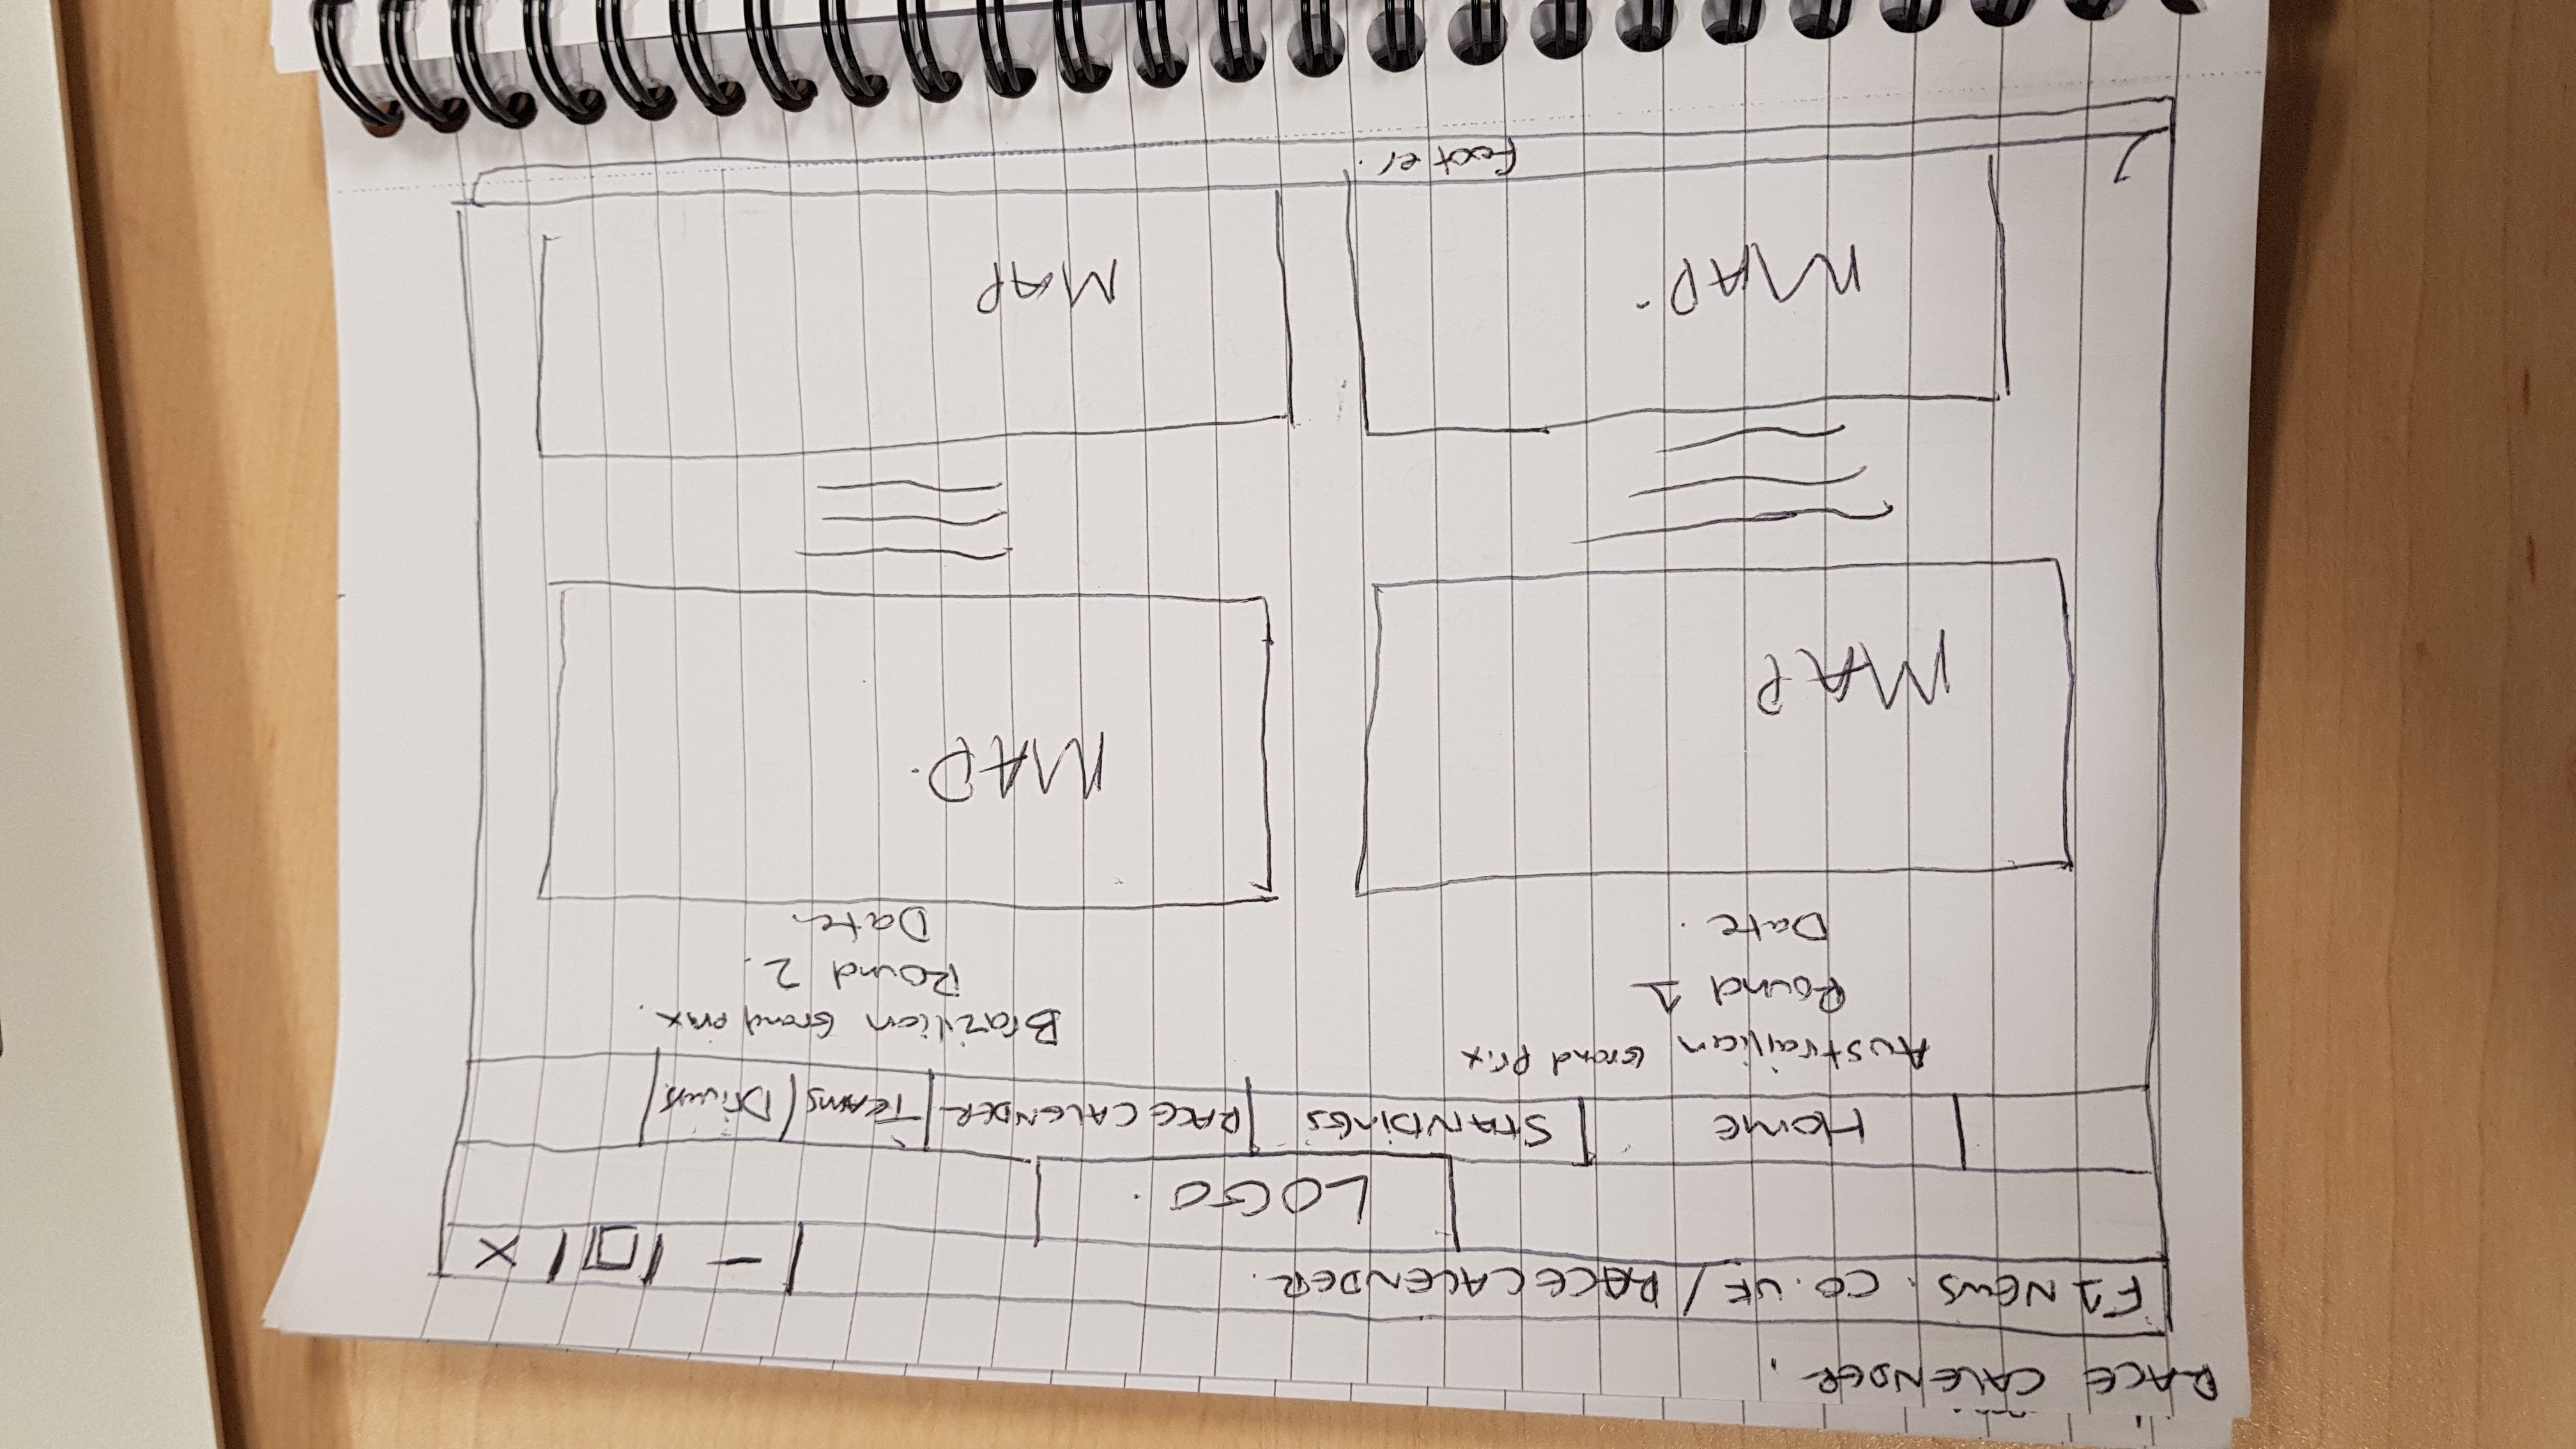 RACE CALENDER.
F1NEWS.CO.UK/RACECALENDER.
— □ X
LOGO.
Home STANDiNGS RACE CALENDER TEAMS Drivers
Austrailian Grand Prix
Round 1
Date.
Brazilian Grand Prix.
Round 2.
Date.
MAP
MAP.
MAP-
MAP
footer.